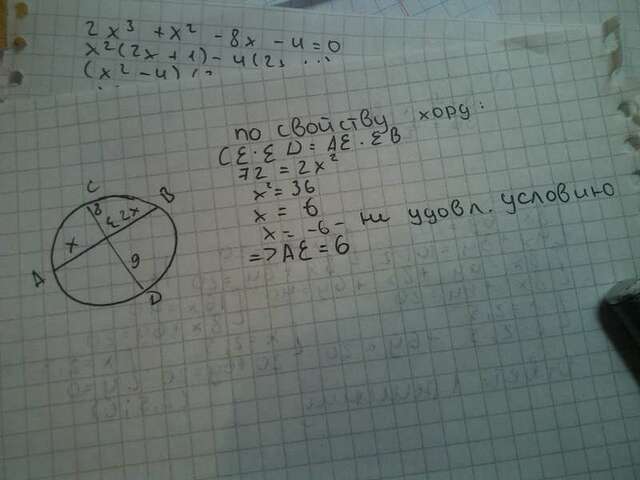 2x³ + x² - 8x - 4 = 0
x²(2x + 1) - 4(2x ...
(x² - 4) (
по свойству хорд:
CE · ED = AE · EB
72 = 2x²
x² = 36
x = 6
x = -6 - не удовл. условию
=> AE = 6
C
B
8
E
2x
x
9
A
D